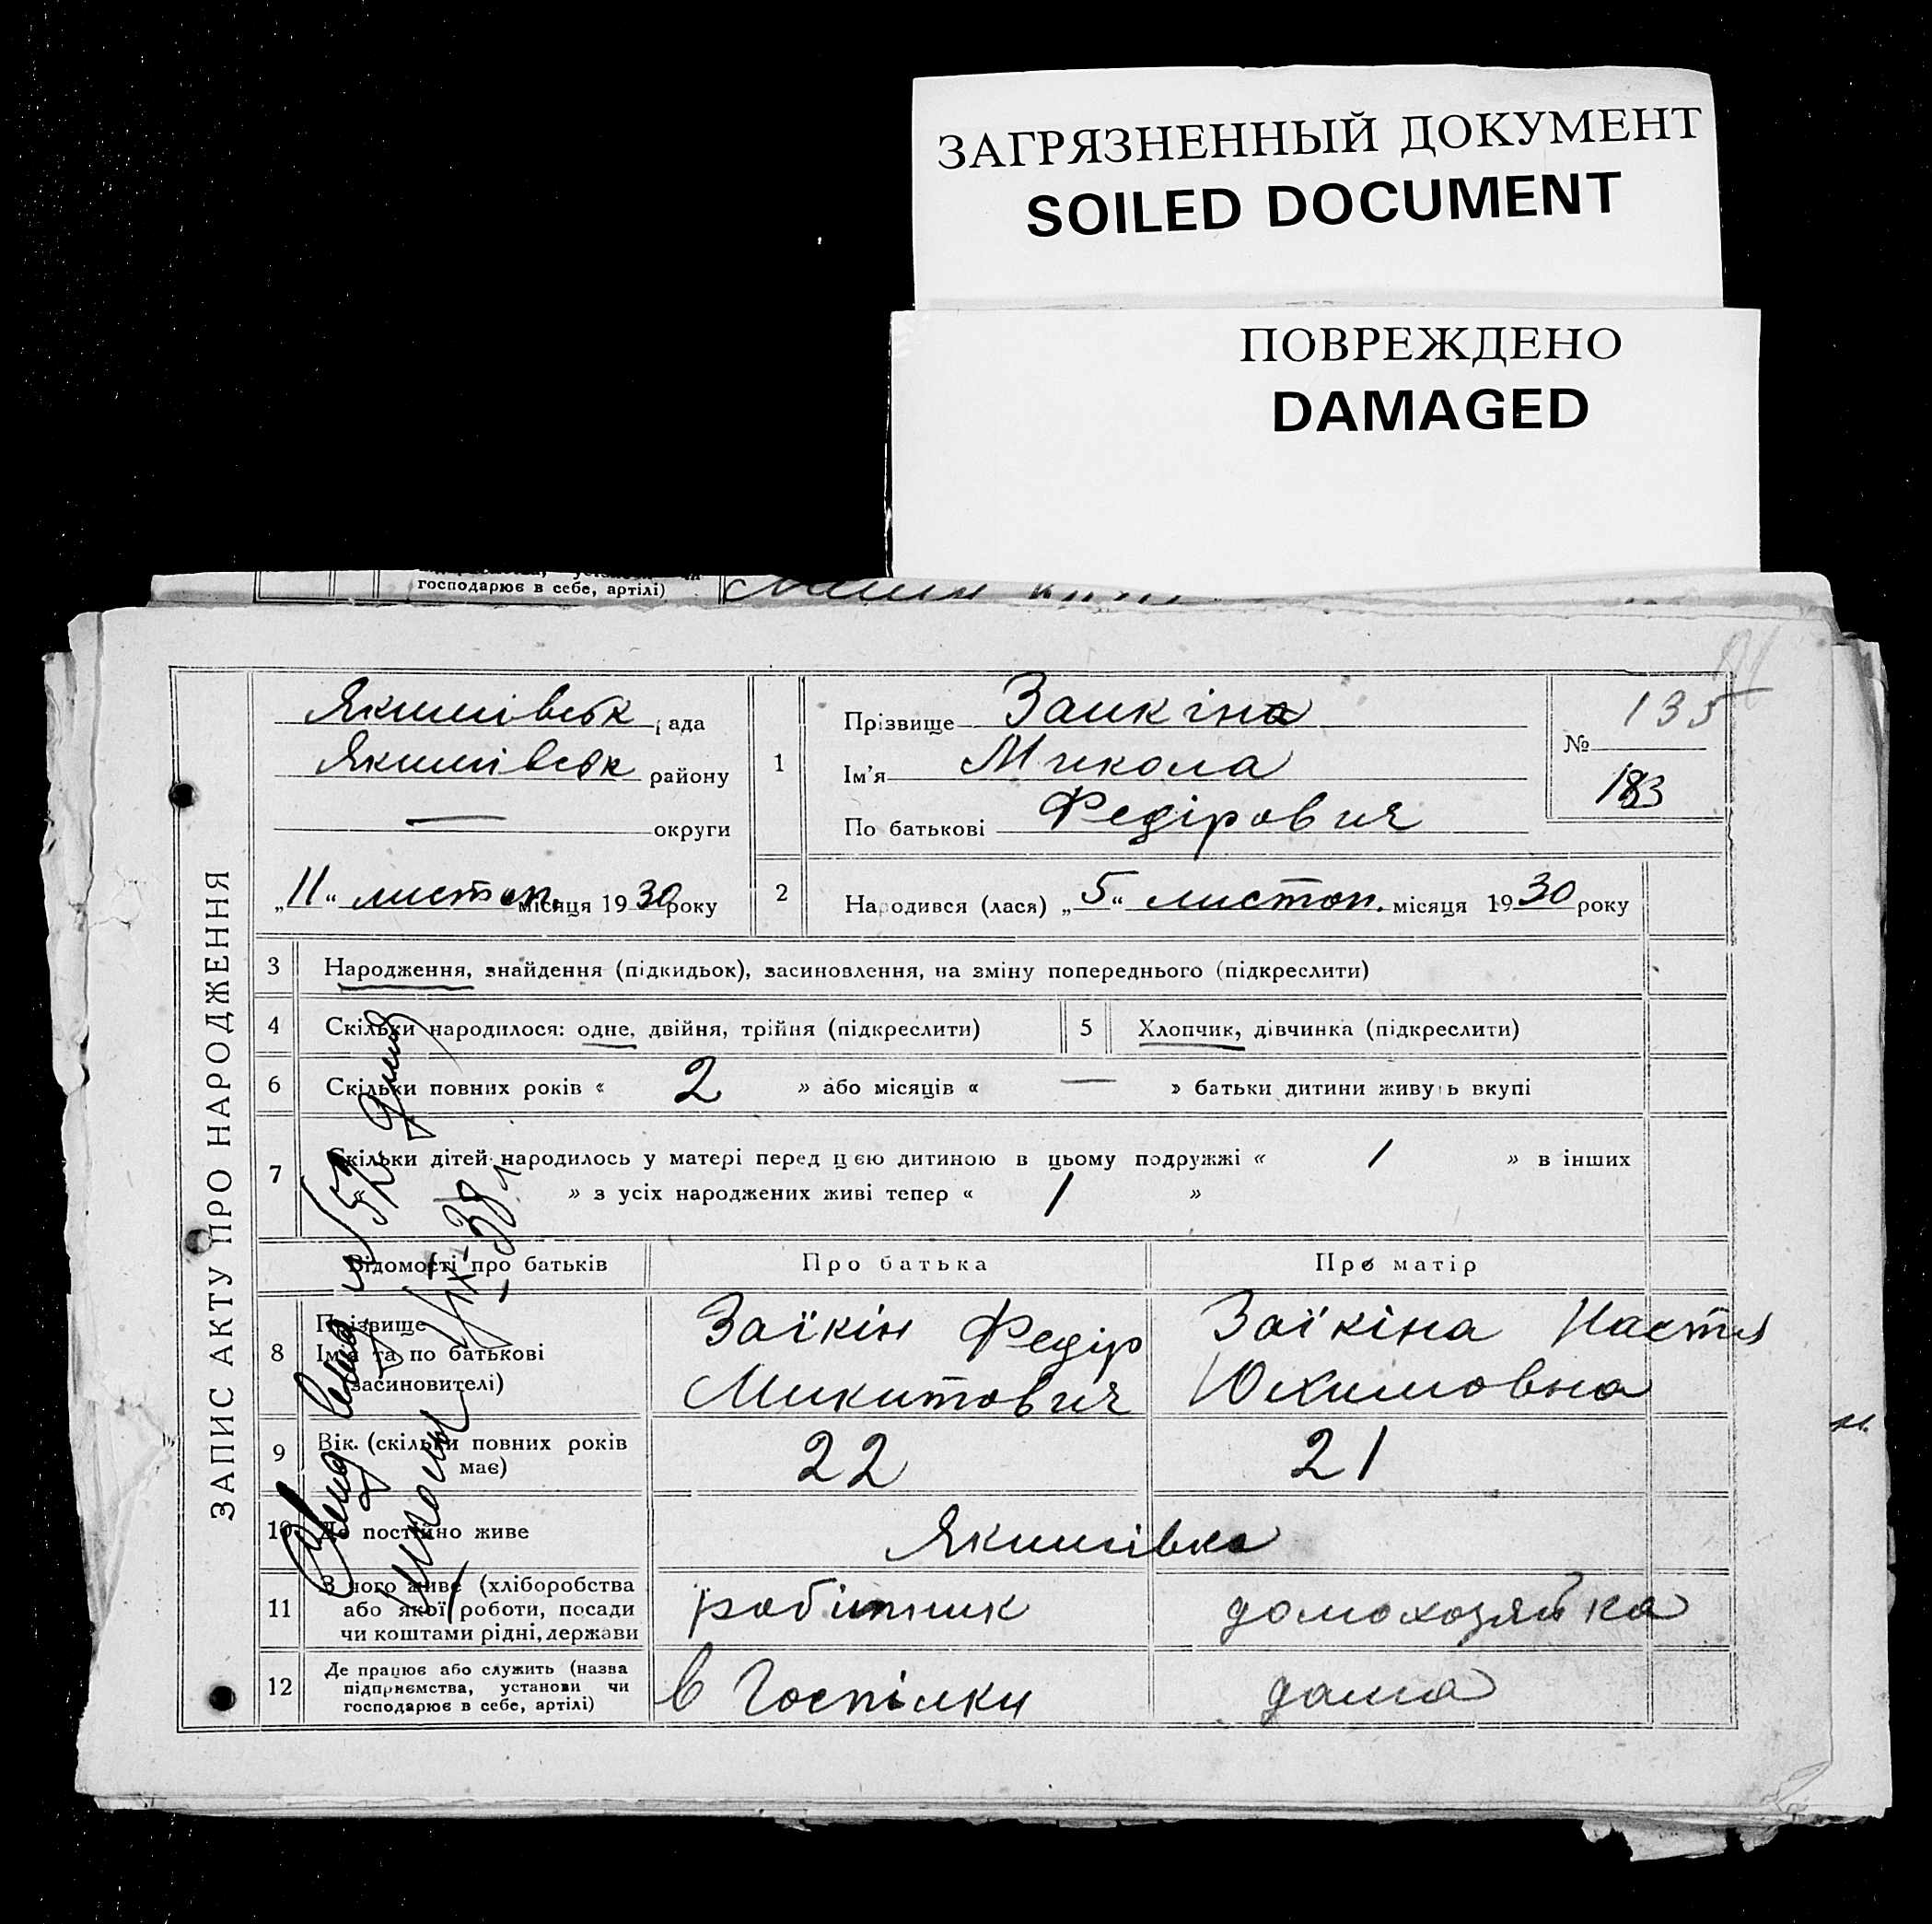 ЗАГРЯЗНЕННЫЙ ДОКУМЕНТ
SOILED DOCUMENT
ПОВРЕЖДЕНО
DAMAGED
господарює в себе, артілі)
ЗАПИС АКТУ ПРО НАРОДЖЕННЯ
Якимівськ рада
Якимівськ району
— округи
„11“ листоп. місяця 1930 року
1
Прізвище Заикіна
Ім'я Микола
По батькові Федірович
135
№
183
2
Народився (лася) „5“ листоп. місяця 1930 року
3 Народження, знайдення (підкидьок), засиновлення, на зміну попереднього (підкреслити)
4 Скільки народилося: одне, двійня, трійня (підкреслити) 5 Хлопчик, дівчинка (підкреслити)
6 Скільки повних років « 2 » або місяців « — » батьки дитини живуть вкупі
7 Скільки дітей народилось у матері перед цією дитиною в цьому подружжі « 1 » в інших
» з усіх народжених живі тепер « 1 »
Відомості про батьків Про батька Про матір
8 Прізвище
Ім'я та по батькові
(засиновителі)
Заїкін Федір
Микитович
Заїкіна Настя
Юхимовна
9 Вік. (скільки повних років
має)
22 21
10 Де постійно живе Якимівка
11 З чого живе (хліборобства
або якої роботи, посади
чи коштами рідні, держави
робітник домохозяйка
12 Де працює або служить (назва
підприємства, установи чи
господарює в себе, артілі)
в Госпілки дома